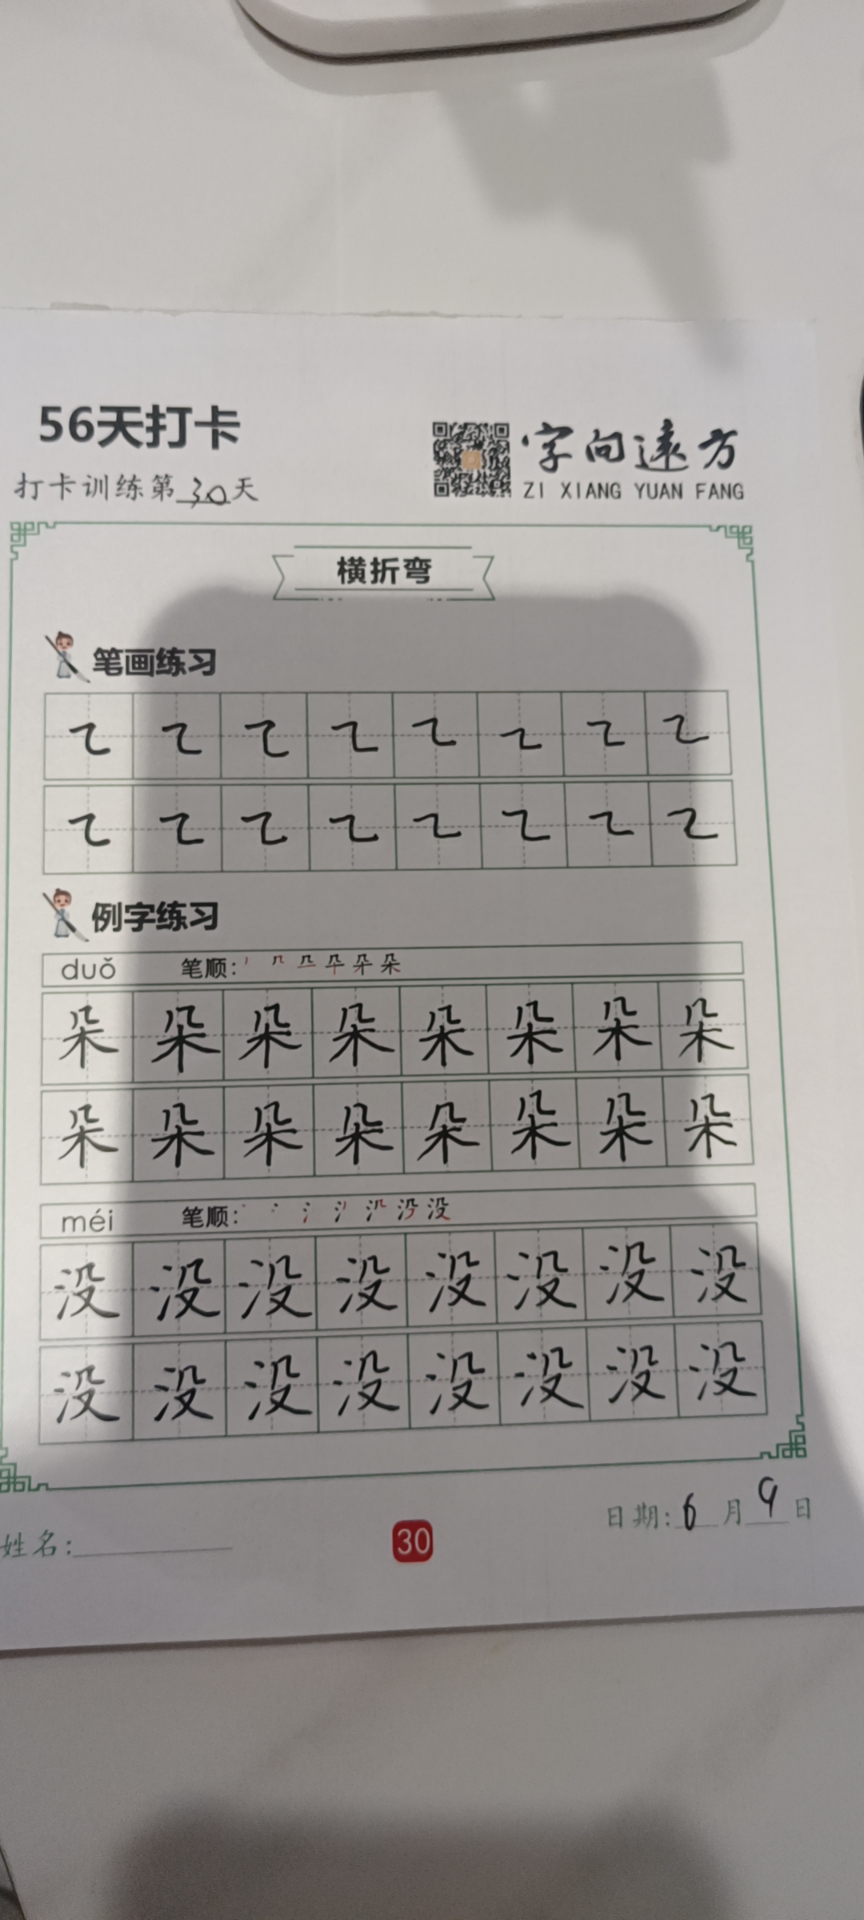 56天打卡
字向远方
打卡训练第30天
ZI XIANG YUAN FANG
横折弯
笔画练习
㇍ ㇍ ㇍ ㇍ ㇍ ㇍ ㇍ ㇍
㇍ ㇍ ㇍ ㇍ ㇍ ㇍ ㇍ ㇍
例字练习
duǒ 笔顺:
朵 朵 朵 朵 朵 朵 朵 朵
朵 朵 朵 朵 朵 朵 朵 朵
méi 笔顺:
没 没 没 没 没 没 没 没
没 没 没 没 没 没 没 没
日期:6月9日
姓名:
30